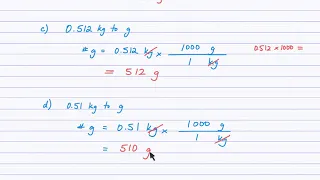 c) 0.512 kg to g
# g = 0.512 kg × 1000 g / 1 kg 0.512 × 1000 =
= 512 g
d) 0.51 kg to g
# g = 0.51 kg × 1000 g / 1 kg
= 510 g